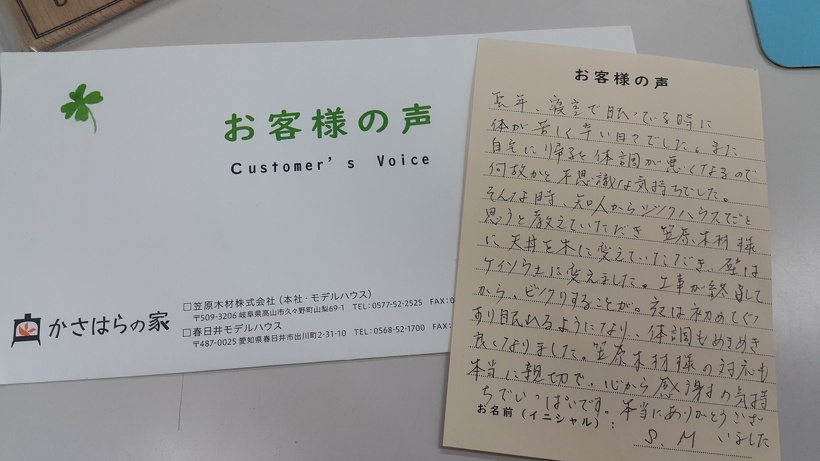 お客様の声
Customer's Voice
かさはらの家
□笠原木材株式会社 (本社・モデルハウス)
〒509-3206 岐阜県高山市久々野町山梨69-1 TEL:0577-52-2525 FAX:0
□春日井モデルハウス
〒487-0025 愛知県春日井市出川町2-31-10 TEL:0568-52-1700 FAX:
お客様の声
長年、寝室で眠っている時に
体が苦しく辛い日々でした。また
自宅に帰ると体調が悪くなるので
何故かと不思議な気持ちでした。
そんな時、知人からシックハウスだと
思うと教えていただき 笠原木材様
に天井を木に変えていただき、壁は
ケイソウ土に変えました。工事が終了して
から、ビックリすることが。夜は初めてぐっ
すり眠れるようになり、体調もめきめき
良くなりました。笠原木材様の対応も
本当に親切で、心から感謝の気持
ちでいっぱいです。本当にありがとうござ
お名前(イニシャル): S.M いました